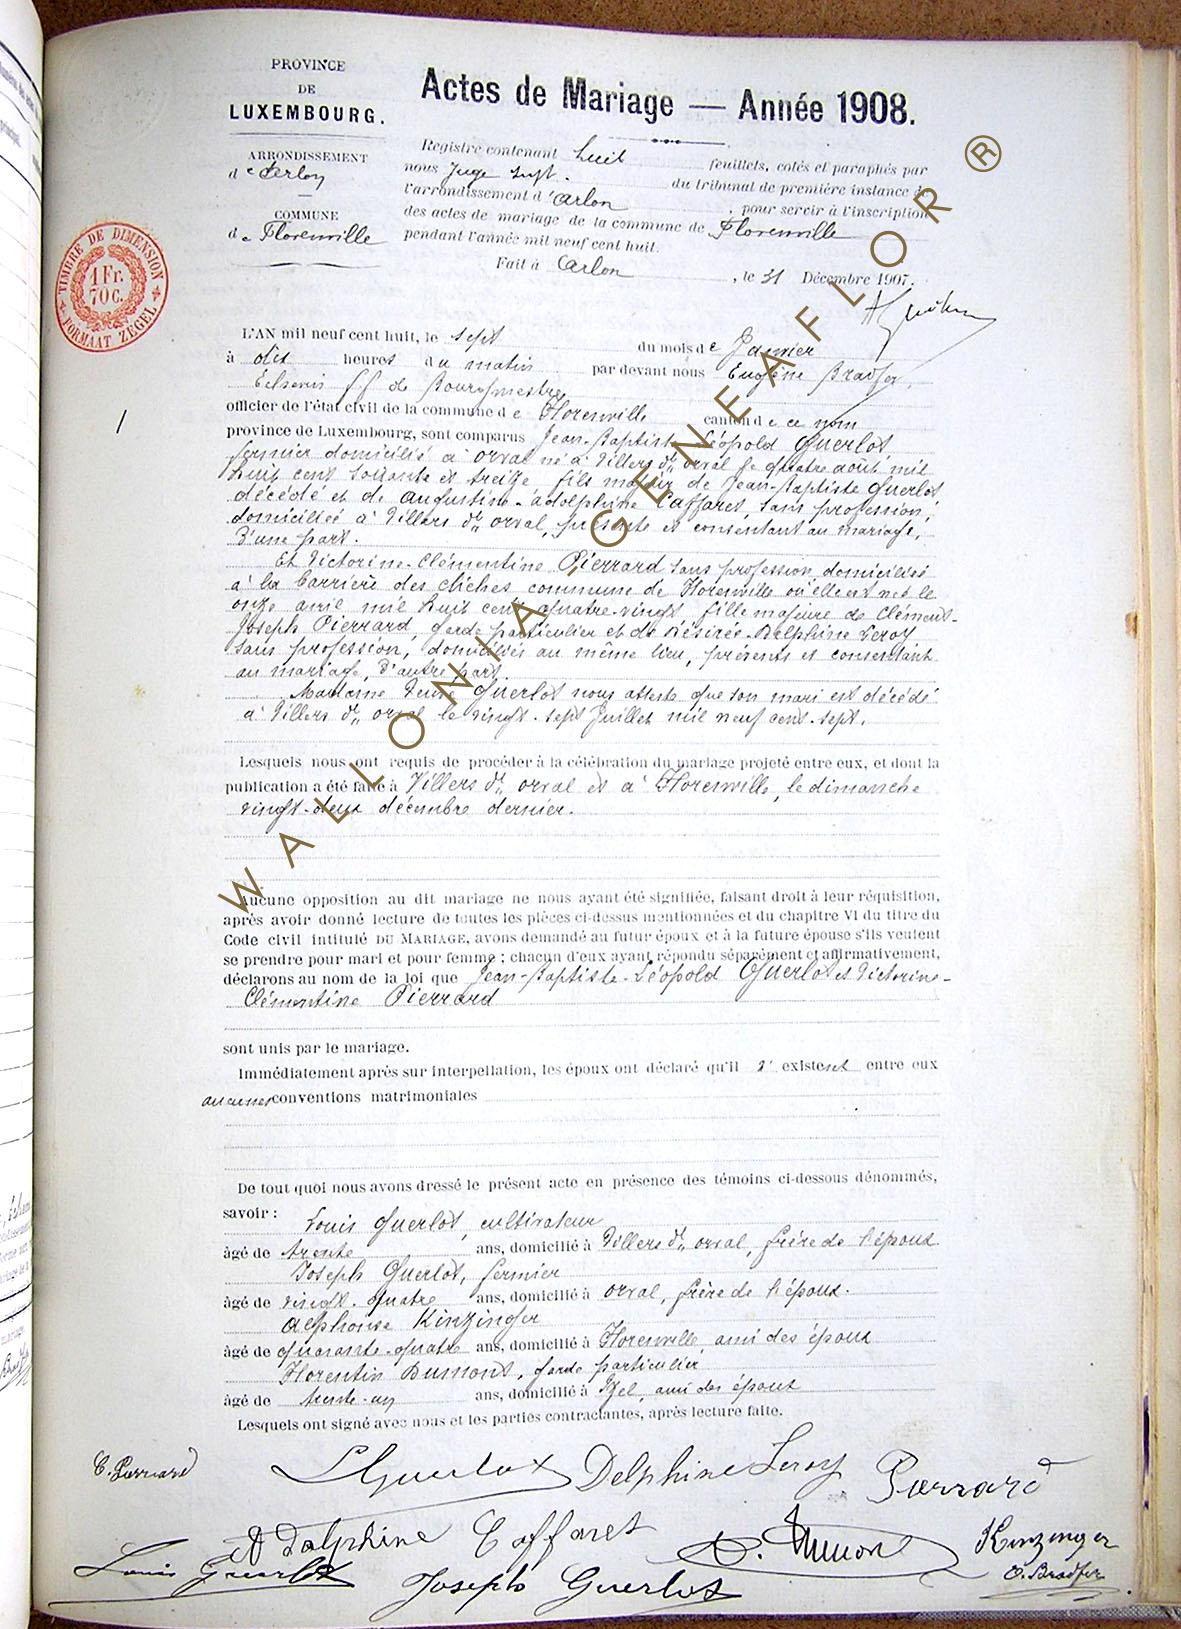 PROVINCE
DE
LUXEMBOURG.
ARRONDISSEMENT
d'Arlon
COMMUNE
de Florenville
TIMBRE DE DIMENSION
1 Fr.
70 c.
FORMAAT ZEGEL
Actes de Mariage — Année 1908.
Registre contenant huit feuillets, cotés et paraphés par
nous Juge supt. du tribunal de première instance de
l'arrondissement d'Arlon, pour servir à l'inscription
des actes de mariage de la commune de Florenville
pendant l'année mil neuf cent huit.
Fait à Arlon, le 31 Décembre 1907.
1
L'AN mil neuf cent huit, le sept du mois de Janvier
à dix heures du matin par devant nous Eugène Bradfer,
Echevin f.f. de Bourgmestre
officier de l'état civil de la commune de Florenville canton de ce nom
province de Luxembourg, sont comparus Jean-Baptiste Léopold Guerlot,
fermier domicilié à Orval né à Villers dt Orval le quatre août mil
huit cent soixante et treize, fils majeur de Jean-Baptiste Guerlot,
décédé et de Augustine-Adolphine Caffaret, sans profession,
domiciliée à Villers dt Orval, présente et consentant au mariage,
d'une part.
Et Victorine-Clémentine Pierrard sans profession, domiciliée
à la barrière des cliches commune de Florenville où elle est née le
onze avril mil huit cent quatre-vingt fille majeure de Clément-
Joseph Pierrard, garde particulier et de Désirée-Delphine Leroy
sans profession, domiciliés au même lieu, présents et consentant
au mariage, d'autre part.
Madame Veuve Guerlot nous atteste que son mari est décédé
à Villers dt Orval le vingt-sept Juillet mil neuf cent-sept.
Lesquels nous ont requis de procéder à la célébration du mariage projeté entre eux, et dont la
publication a été faite à Villers dt Orval et à Florenville, le dimanche
vingt-deux décembre dernier.
Aucune opposition au dit mariage ne nous ayant été signifiée, faisant droit à leur réquisition,
après avoir donné lecture de toutes les pièces ci-dessus mentionnées et du chapitre VI du titre du
Code civil intitulé DU MARIAGE, avons demandé au futur époux et à la future épouse s'ils veulent
se prendre pour mari et pour femme ; chacun d'eux ayant répondu séparément et affirmativement,
déclarons au nom de la loi que Jean-Baptiste-Léopold Guerlot et Victorine-
Clémentine Pierrard
sont unis par le mariage.
Immédiatement après sur interpellation, les époux ont déclaré qu'il n'existent entre eux
aucunes conventions matrimoniales
De tout quoi nous avons dressé le présent acte en présence des témoins ci-dessous dénommés,
savoir : Louis Guerlot, cultivateur
âgé de trente ans, domicilié à Villers dt Orval, frère de l'époux
Joseph Guerlot, fermier
âgé de vingt-quatre ans, domicilié à Orval, frère de l'époux.
Alphonse Kinzinger
âgé de quarante-quatre ans, domicilié à Florenville, ami des époux
Florentin Dumont, garde particulier
âgé de trente-un ans, domicilié à Izel, ami des époux
Lesquels ont signé avec nous et les parties contractantes, après lecture faite.
C. Pierrard L Guerlot Delphine Leroy Pierrard
Adolphine Caffaret Dumont Kinzinger
Louis Guerlot Joseph Guerlot E. Bradfer
WALLONIA GENEAFLOR ®